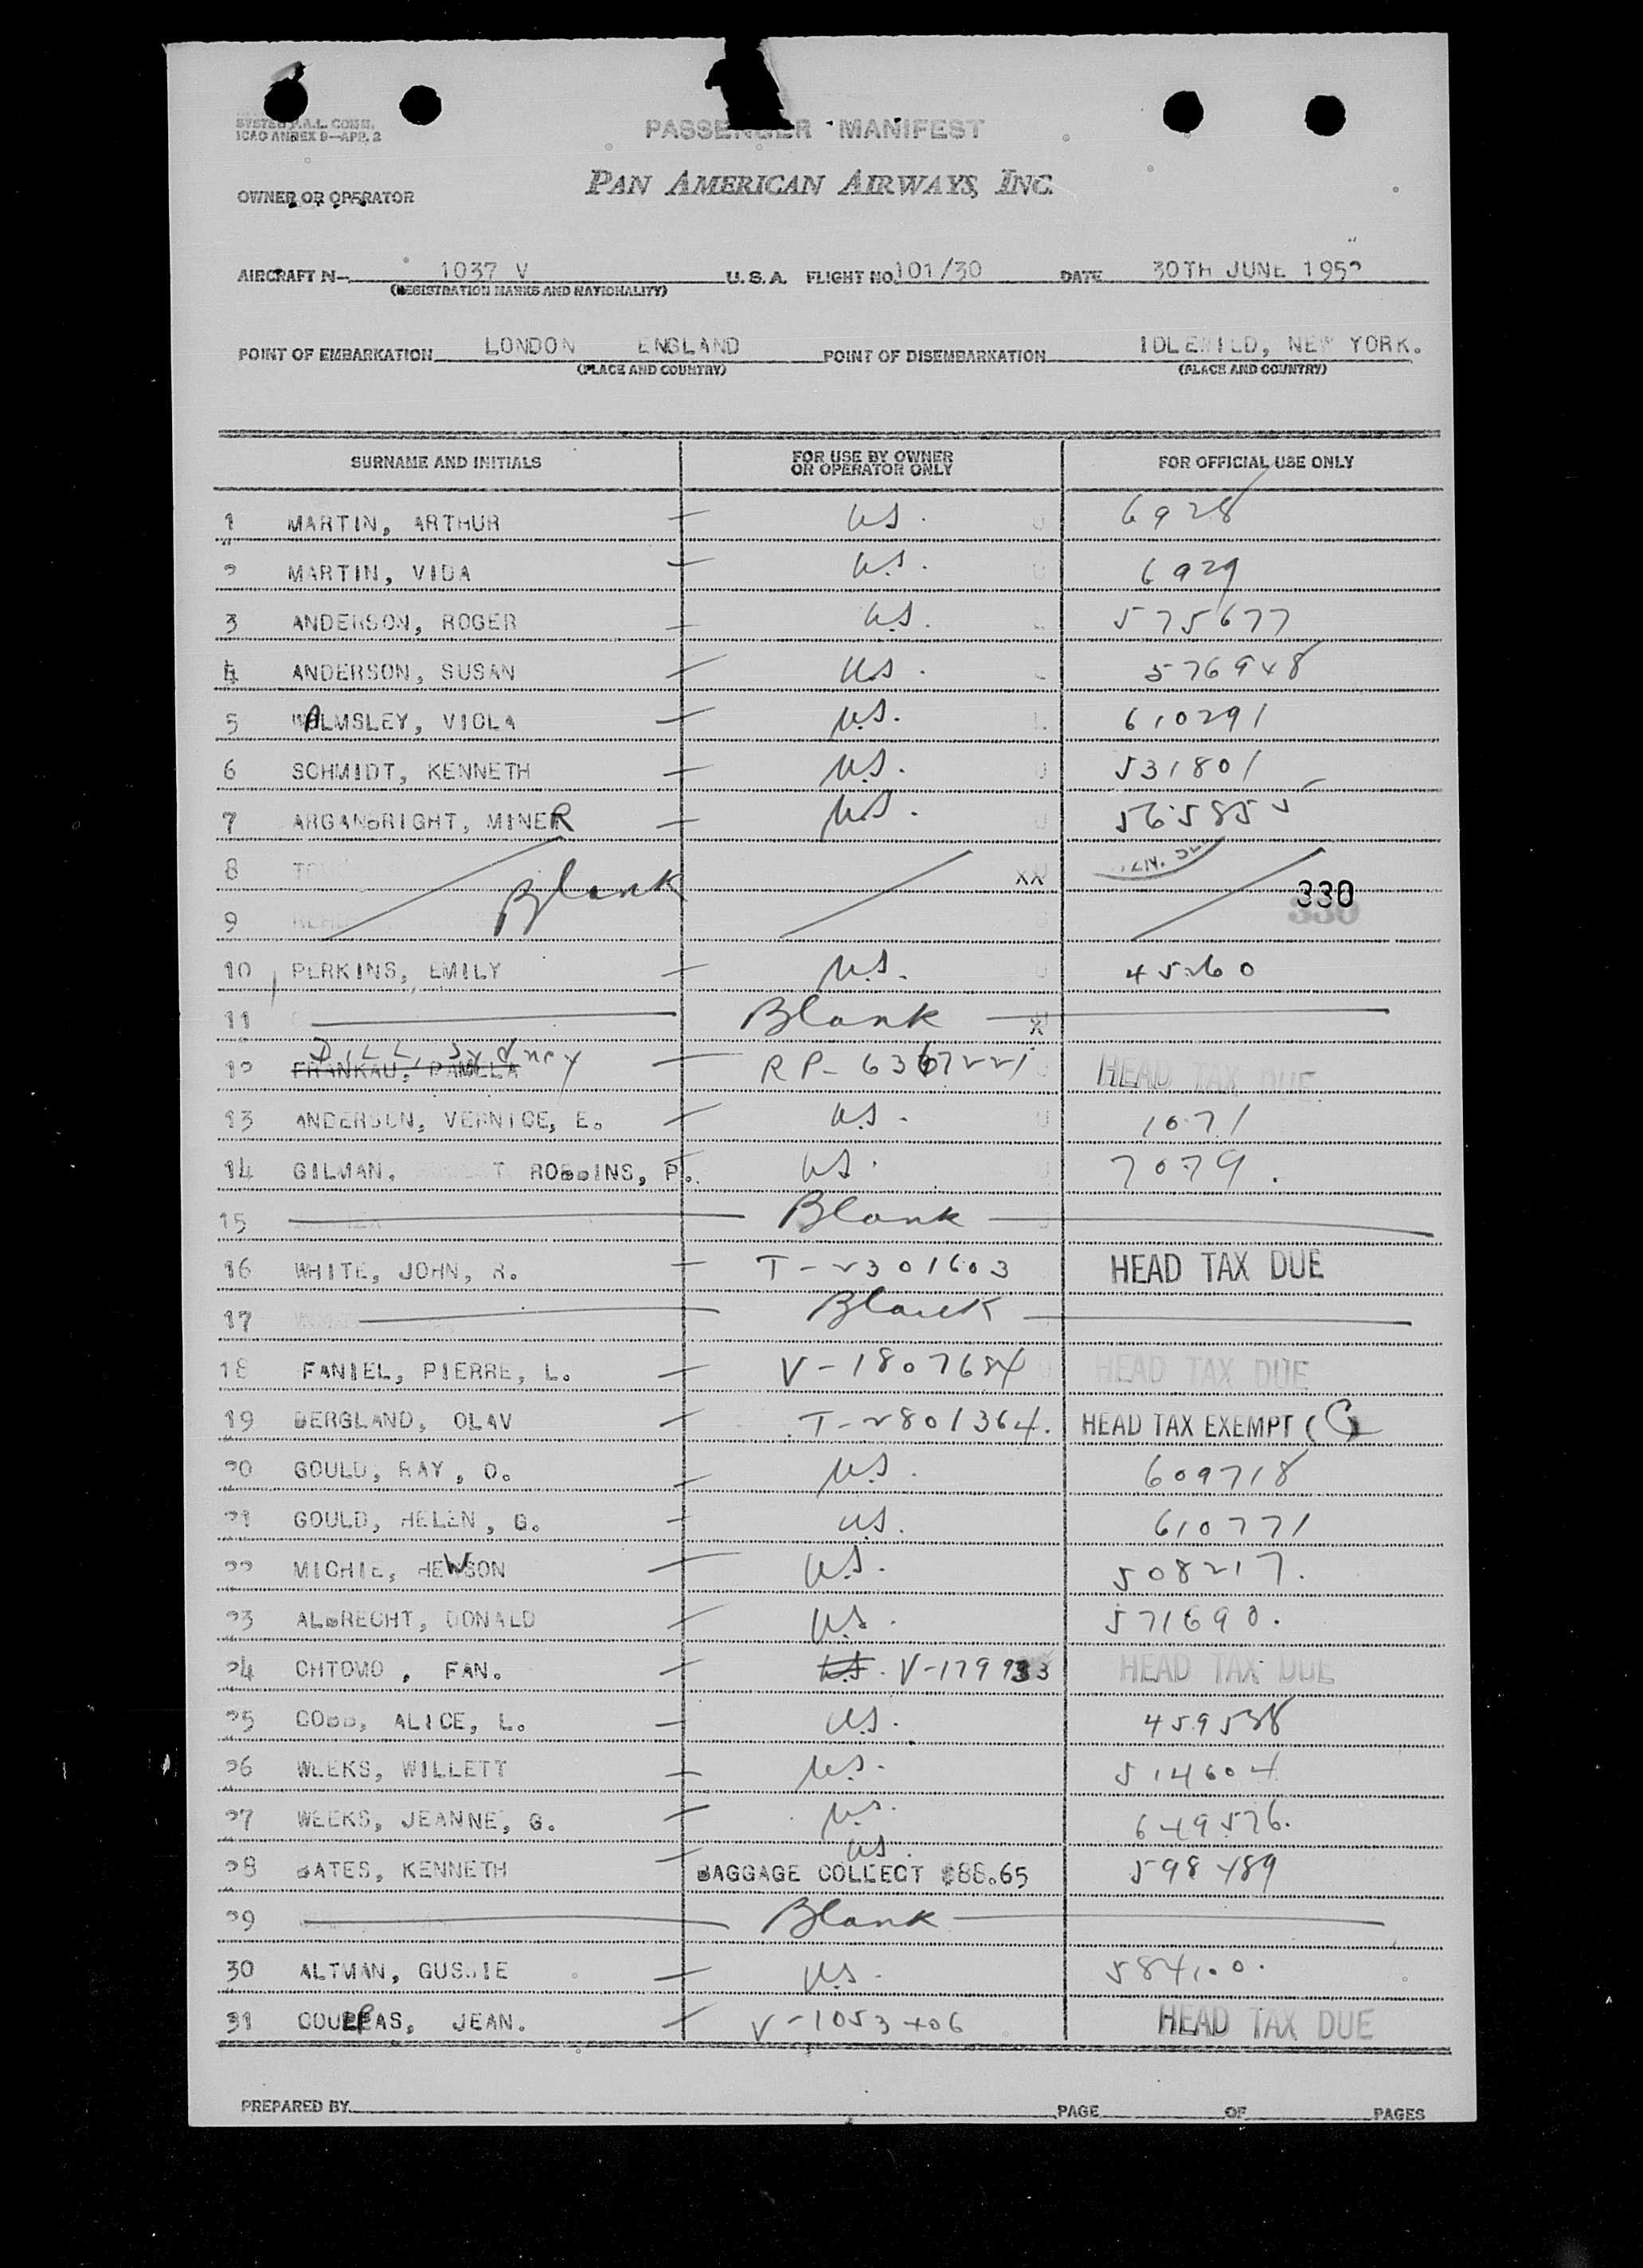 SYSTEM P.A.L. COMM.
ICAO ANNEX 9—APP. 2
PASSENGER MANIFEST
OWNER OR OPERATOR
PAN AMERICAN AIRWAYS, INC.
AIRCRAFT N— 1037 V U. S. A. FLIGHT NO. 101/30 DATE 30TH JUNE 1952
(REGISTRATION MARKS AND NATIONALITY)
POINT OF EMBARKATION LONDON ENGLAND POINT OF DISEMBARKATION IDLEWILD, NEW YORK.
(PLACE AND COUNTRY) (PLACE AND COUNTRY)
SURNAME AND INITIALS FOR USE BY OWNER OR OPERATOR ONLY FOR OFFICIAL USE ONLY
1 MARTIN, ARTHUR — U.S. 6928
2 MARTIN, VIDA — U.S. 6929
3 ANDERSON, ROGER — U.S. 575677
4 ANDERSON, SUSAN — U.S. 576948
5 WALMSLEY, VIOLA — U.S. 610291
6 SCHMIDT, KENNETH — U.S. 531801
7 ARGANBRIGHT, MINER — U.S. 565855
8 Blank XX
330
9
10 PERKINS, EMILY — U.S. 45260
11 Blank X
12 FRANKAU, PAMELA DILL, Sydney — RP-6367221 HEAD TAX DUE
13 ANDERSON, VERNICE, E. — U.S. 1071
14 GILMAN, ROBBINS, P. U.S. 7079.
15 Blank
16 WHITE, JOHN, R. — T-2301603 HEAD TAX DUE
17 Blank
18 FANIEL, PIERRE, L. — V-1807684 HEAD TAX DUE
19 BERGLAND, OLAV — T-2801364. HEAD TAX EXEMPT (C)
20 GOULD, RAY, O. — U.S. 609718
21 GOULD, HELEN, G. — U.S. 610771
22 MICHIE, HEWSON — U.S. 508217.
23 ALBRECHT, DONALD — U.S. 571690.
24 CHTOMO, FAN. — U.S. V-179933 HEAD TAX DUE
25 COBB, ALICE, L. — U.S. 459538
26 WEEKS, WILLETT — U.S. 514604
27 WEEKS, JEANNE, G. — U.S. 649576.
28 BATES, KENNETH — U.S. BAGGAGE COLLECT $88.65 598489
29 Blank
30 ALTMAN, GUSSIE — U.S. 584100.
31 JEAN. — V-1053406 HEAD TAX DUE
PREPARED BY PAGE OF PAGES